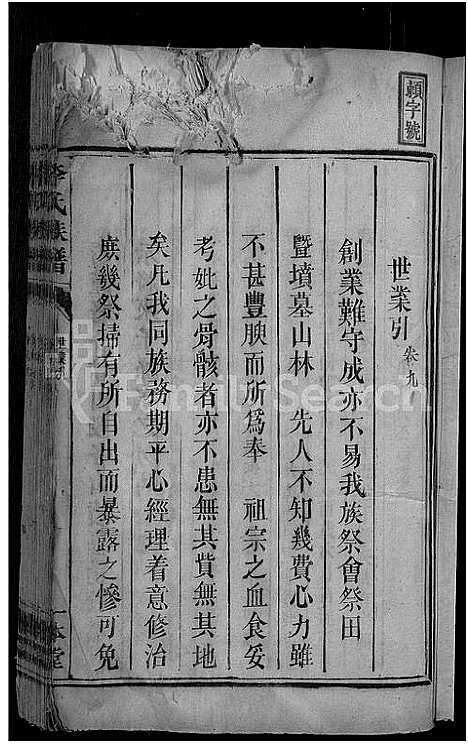 賴字號
世業引 卷九
創業難守成亦不易我族祭會祭田
暨墳墓山林 先人不知幾費心力雖
不甚豐腴而所爲奉 祖宗之血食妥
考妣之骨骸者亦不患無其貲無其地
矣凡我同族務期平心經理着意修治
庶幾祭掃有所自出而暴露之慘可免
李氏族譜
一本堂
FamilySearch